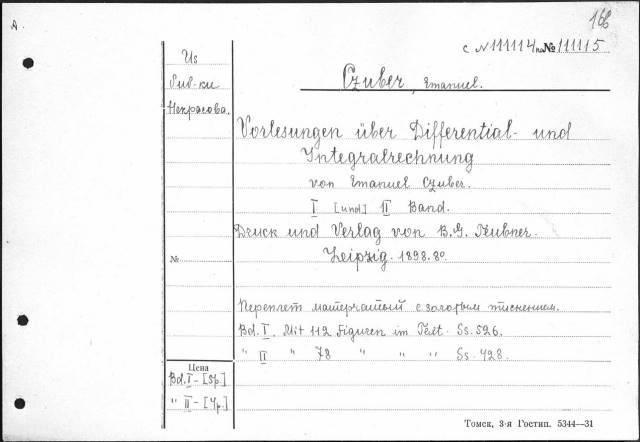 A.
166
с N 111114 по № 111115
Из
биб-ки
Некрасова.
Czuber, Emanuel.
Vorlesungen über Differential- und
Integralrechnung
von Emanuel Czuber.
I [und] II Band.
Druck und Verlag von B.G. Teubner.
Leipzig. 1898.
№
Переплет матерчатый с золотым тиснением.
Bd. I. Mit 112 Figuren im Text. Ss. 526.
" II " 78 " " " Ss. 428.
Цена
Bd. I - [5р.]
" II - [4р.]
Томск, 3-я Гостип. 5344—31